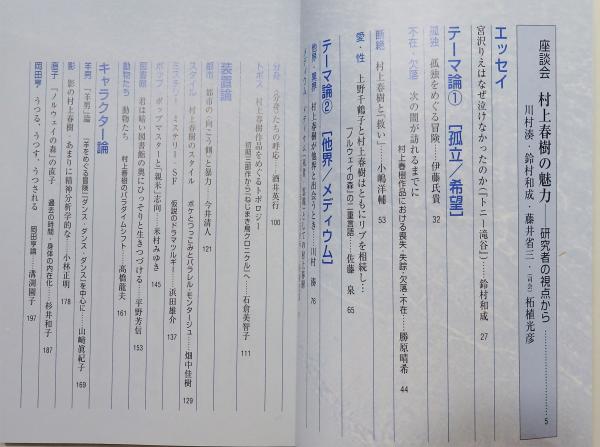 座談会 村上春樹の魅力 研究者の視点から……5
川村湊・鈴村和成・藤井省三・(司会)柘植光彦
エッセイ
宮沢りえはなぜ泣けなかったのか(「トニー滝谷」)……鈴村和成 27
テーマ論① [孤立/希望]
孤独 孤独をめぐる冒険……伊藤氏貴 32
不在・欠落 次の闇が訪れるまでに
村上春樹作品における喪失・失踪・欠落・不在……勝原晴希 44
断絶 村上春樹と〈救い〉……小嶋洋輔 53
愛・性 上野千鶴子と村上春樹はともにリブを相続し…
『ノルウェイの森』の二重言語……佐藤泉 65
テーマ論② [他界/メディウム]
他界・異界 村上春樹が他界と出会うとき……川村湊 76
メディウム
分身 〈分身〉たちの呼応……酒井英行 100
トポス 村上春樹作品をめぐるトポロジー
初期三部作から『ねじまき鳥クロニクル』へ……石倉美智子 111
装置論
都市 都市の〈向こう側〉と暴力……今井清人 121
スタイル 村上春樹のスタイル ボケとつっこみとパラレル・モンタージュ……畑中佳樹 129
ミステリー ミステリー・SF 仮説のドラマツルギー……浜田雄介 137
ポップ ポップマスターと「親米」志向……米村みゆき 145
図書館 君は暗い図書館の奥にひっそりと生きつづける……平野芳信 153
動物たち 動物たち 村上春樹のパラダイムシフト……高橋龍夫 161
キャラクター論
羊男 「羊男」論 『羊をめぐる冒険』『ダンス・ダンス・ダンス』を中心に……山﨑眞紀子 169
影 影の村上春樹 あまりに精神分析学的な……小林正明 178
直子 『ノルウェイの森』の直子 過去の時間・身体の内在化……杉井和子 187
岡田亨 うつる、うつす、うつされる 岡田亨論……溝渕園子 197